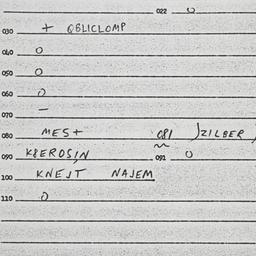 022 0
030 + QBLICLOMP
040 0
050 0
060 0
070 —
080 MES+ 081 JZILBER,
090 K8EROSIN 091 0
100 KNEJT NAJEM
110 0